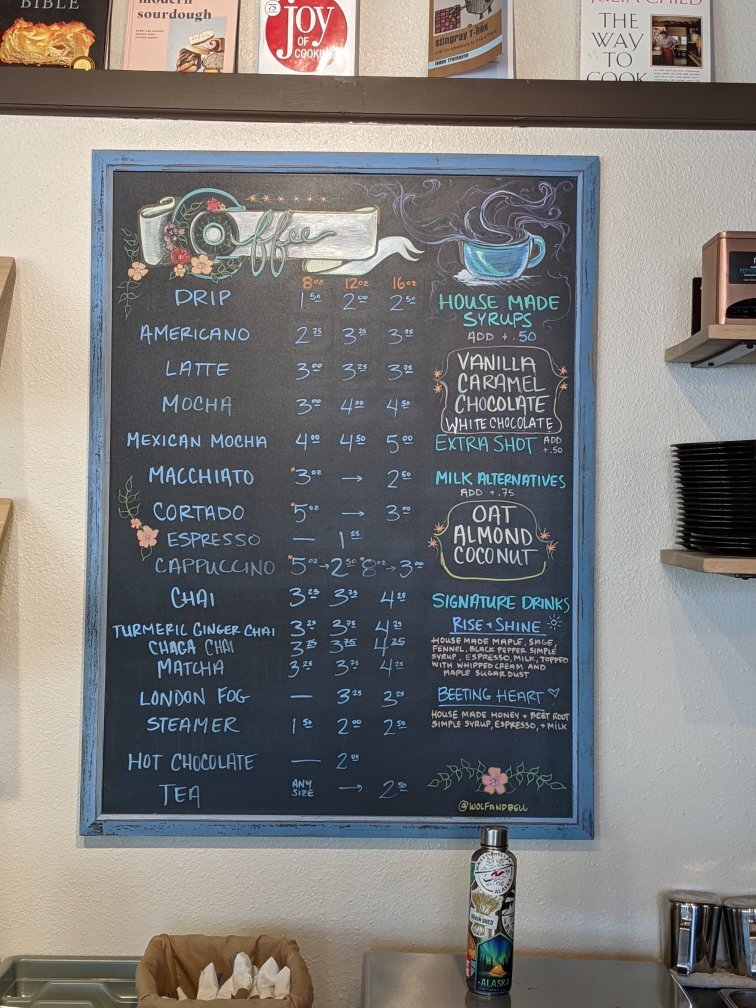 BIBLE
modern
sourdough
75
joy
OF
COOKING
Stingray T-Rex
JULIA CHILD
THE
WAY TO
COOK
Coffee
8oz 12oz 16oz
DRIP 1.50 2.00 2.50
AMERICANO 2.75 3.25 3.75
LATTE 3.00 3.25 3.75
MOCHA 3.00 4.00 4.50
MEXICAN MOCHA 4.00 4.50 5.00
MACCHIATO *3oz → 2.50
CORTADO *5oz → 3.00
ESPRESSO — 1.25
CAPPUCCINO *5oz→2.50 *8oz→3.00
CHAI 3.25 3.75 4.25
TURMERIC GINGER CHAI 3.25 3.75 4.25
CHAGA CHAI 3.25 3.75 4.25
MATCHA 3.25 3.75 4.25
LONDON FOG — 3.25 3.25
STEAMER 1.50 2.00 2.50
HOT CHOCOLATE — 2.00
TEA ANY SIZE → 2.50
HOUSE MADE
SYRUPS
ADD +.50
VANILLA
CARAMEL
CHOCOLATE
WHITE CHOCOLATE
EXTRA SHOT ADD +.50
MILK ALTERNATIVES
ADD +.75
OAT
ALMOND
COCONUT
SIGNATURE DRINKS
RISE + SHINE
HOUSE MADE MAPLE, SAGE,
FENNEL, BLACK PEPPER SIMPLE
SYRUP, ESPRESSO, MILK, TOPPED
WITH WHIPPED CREAM AND
MAPLE SUGAR DUST
BEETING HEART
HOUSE MADE HONEY + BEET ROOT
SIMPLE SYRUP, ESPRESSO, + MILK
@WOLFANDBELL
ALASKA
ALASKA